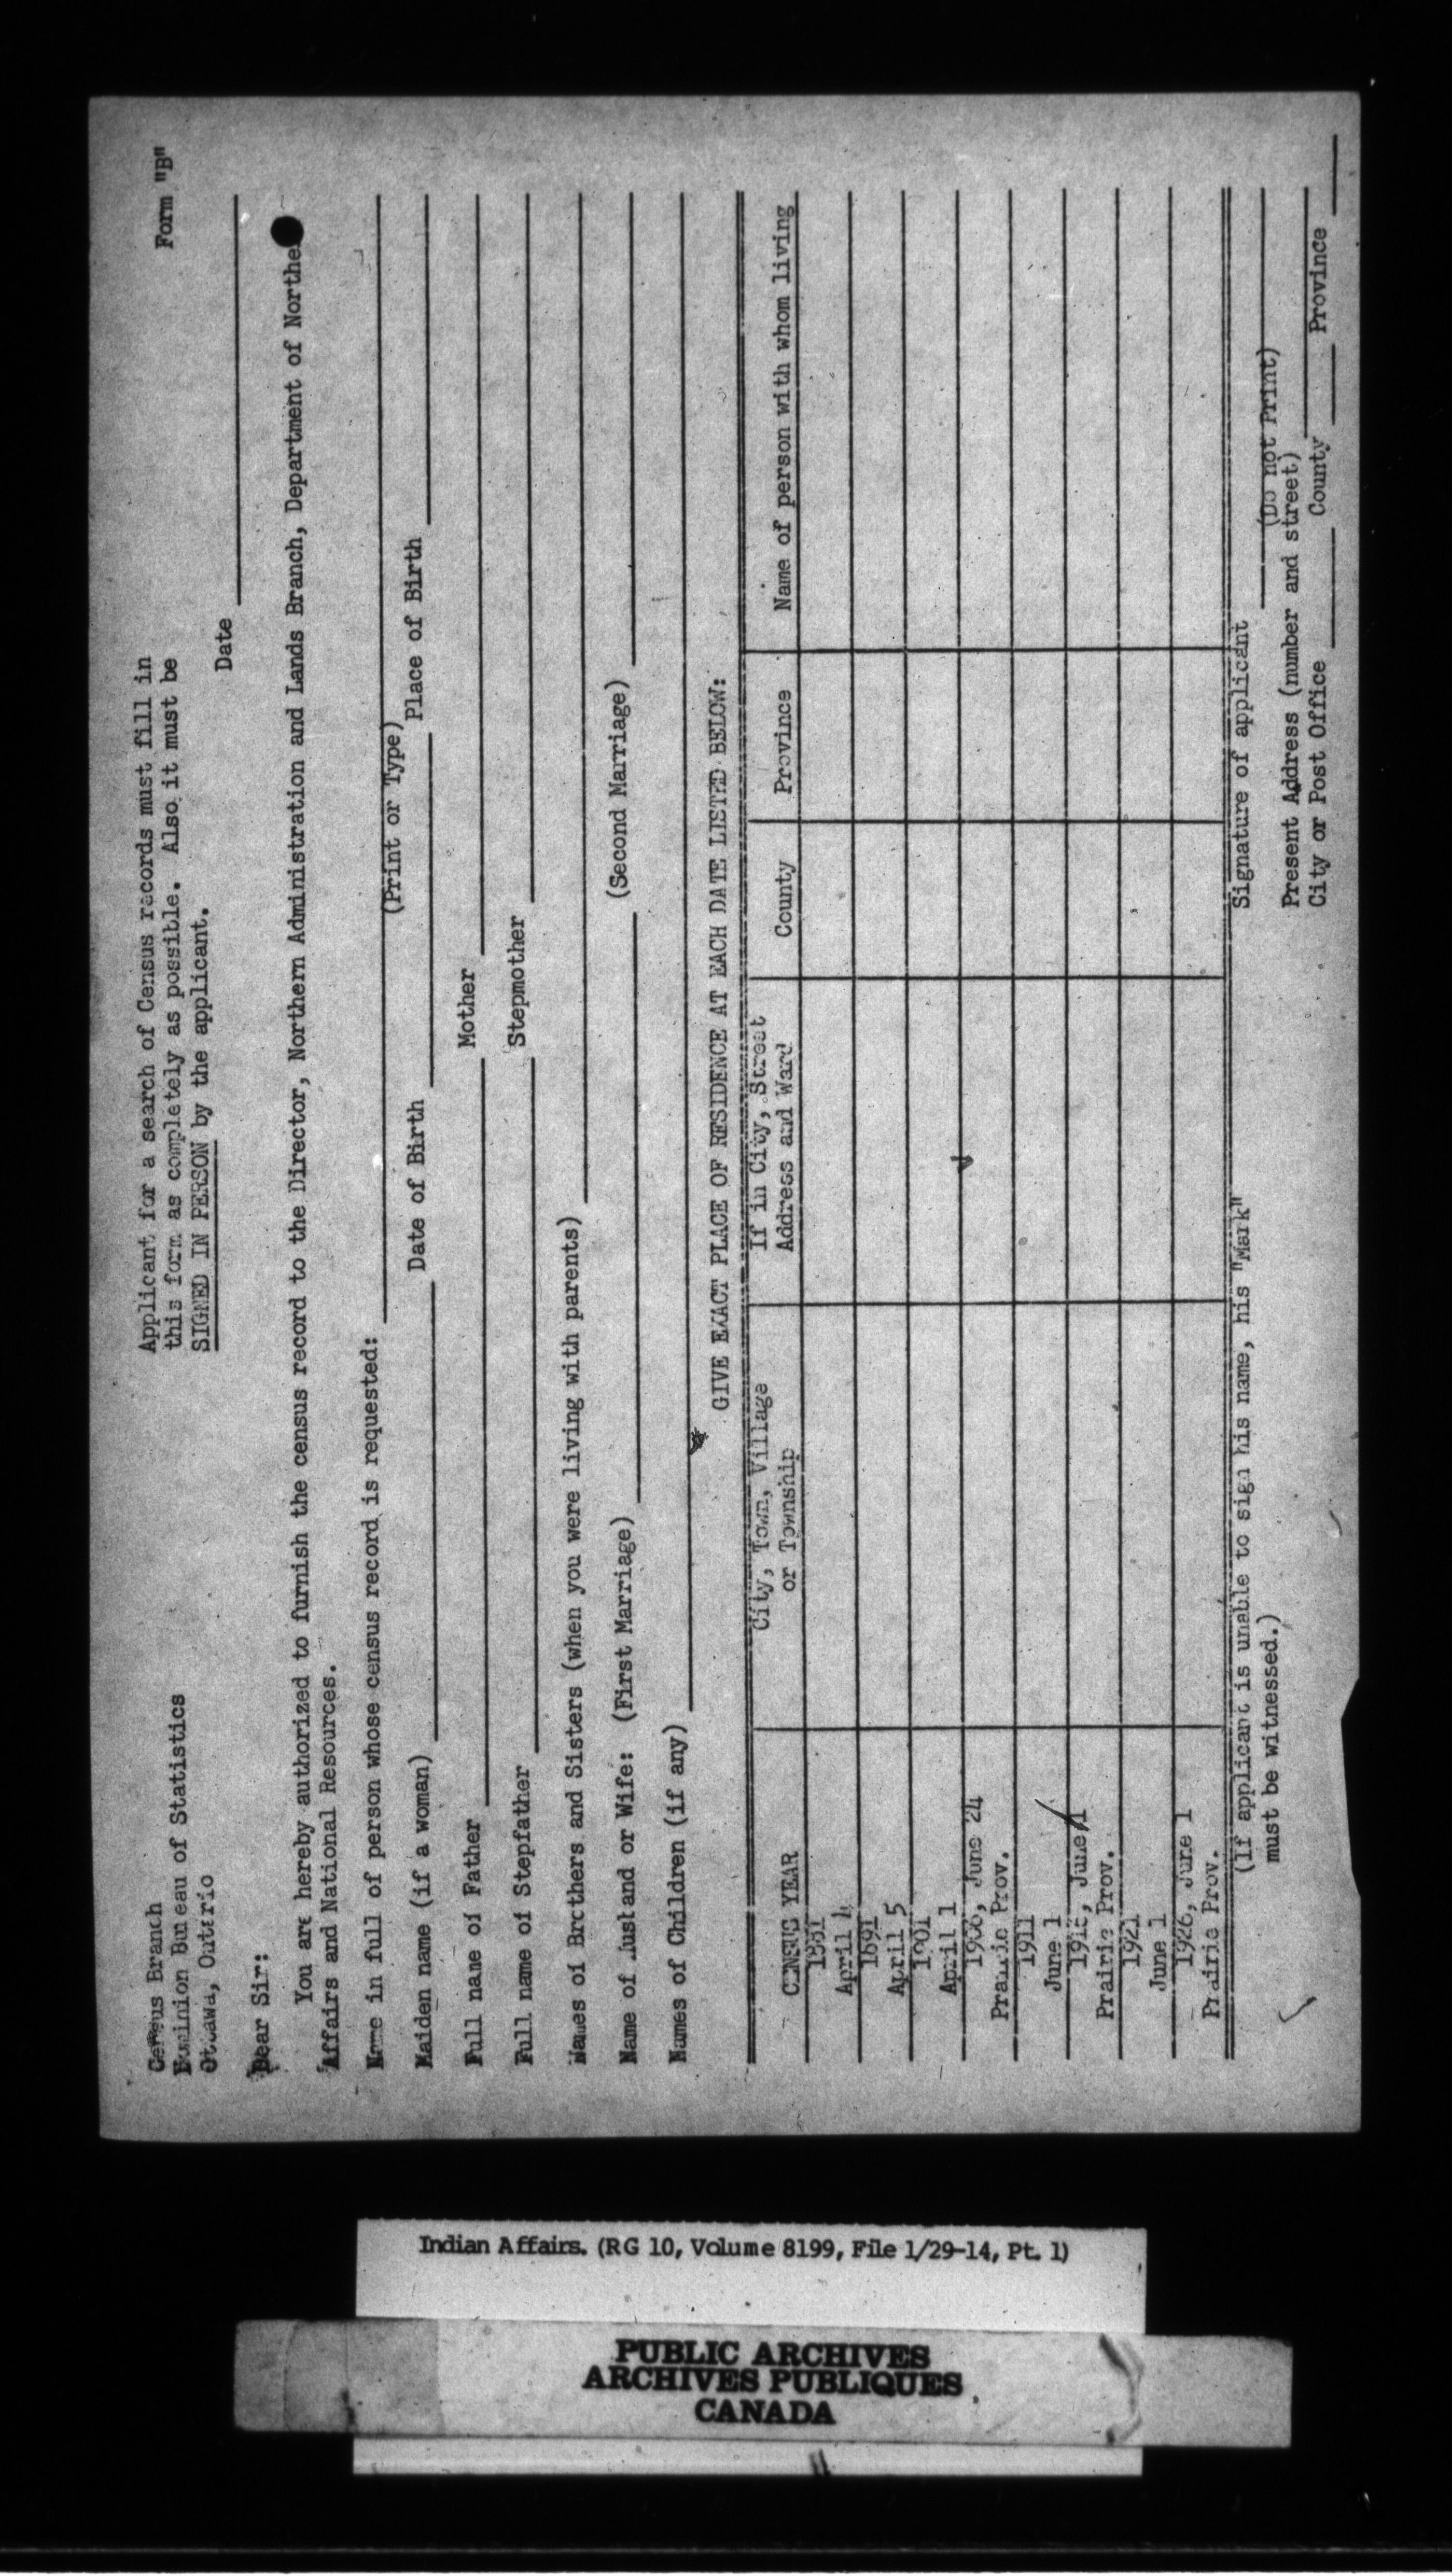 Form "B"
Applicant for a search of Census records must fill in
this form as completely as possible. Also it must be
SIGNED IN PERSON by the applicant.
Census Branch
Dominion Bureau of Statistics
Ottawa, Ontario
Date
Dear Sir:
You are hereby authorized to furnish the census record to the Director, Northern Administration and Lands Branch, Department of Northe
Affairs and National Resources.
Name in full of person whose census record is requested:
(Print or Type)
Maiden name (if a woman) Date of Birth Place of Birth
Full name of Father Mother
Full name of Stepfather Stepmother
Names of Brothers and Sisters (when you were living with parents)
Name of Husband or Wife: (First Marriage) (Second Marriage)
Names of Children (if any)
GIVE EXACT PLACE OF RESIDENCE AT EACH DATE LISTED BELOW:
CENSUS YEAR City, Town, Village or Township If in City, Street Address and Ward County Province Name of person with whom living
1881
April 4
1891
April 5
1901
April 1
1906, June 24
Prairie Prov.
1911
June 1
1916, June 1
Prairie Prov.
1921
June 1
1926, June 1
Prairie Prov.
(If applicant is unable to sign his name, his "Mark"
must be witnessed.)
Signature of applicant
(Do not Print)
Present Address (number and street)
City or Post Office County Province
Indian Affairs. (RG 10, Volume 8199, File 1/29-14, Pt. 1)
PUBLIC ARCHIVES
ARCHIVES PUBLIQUES
CANADA